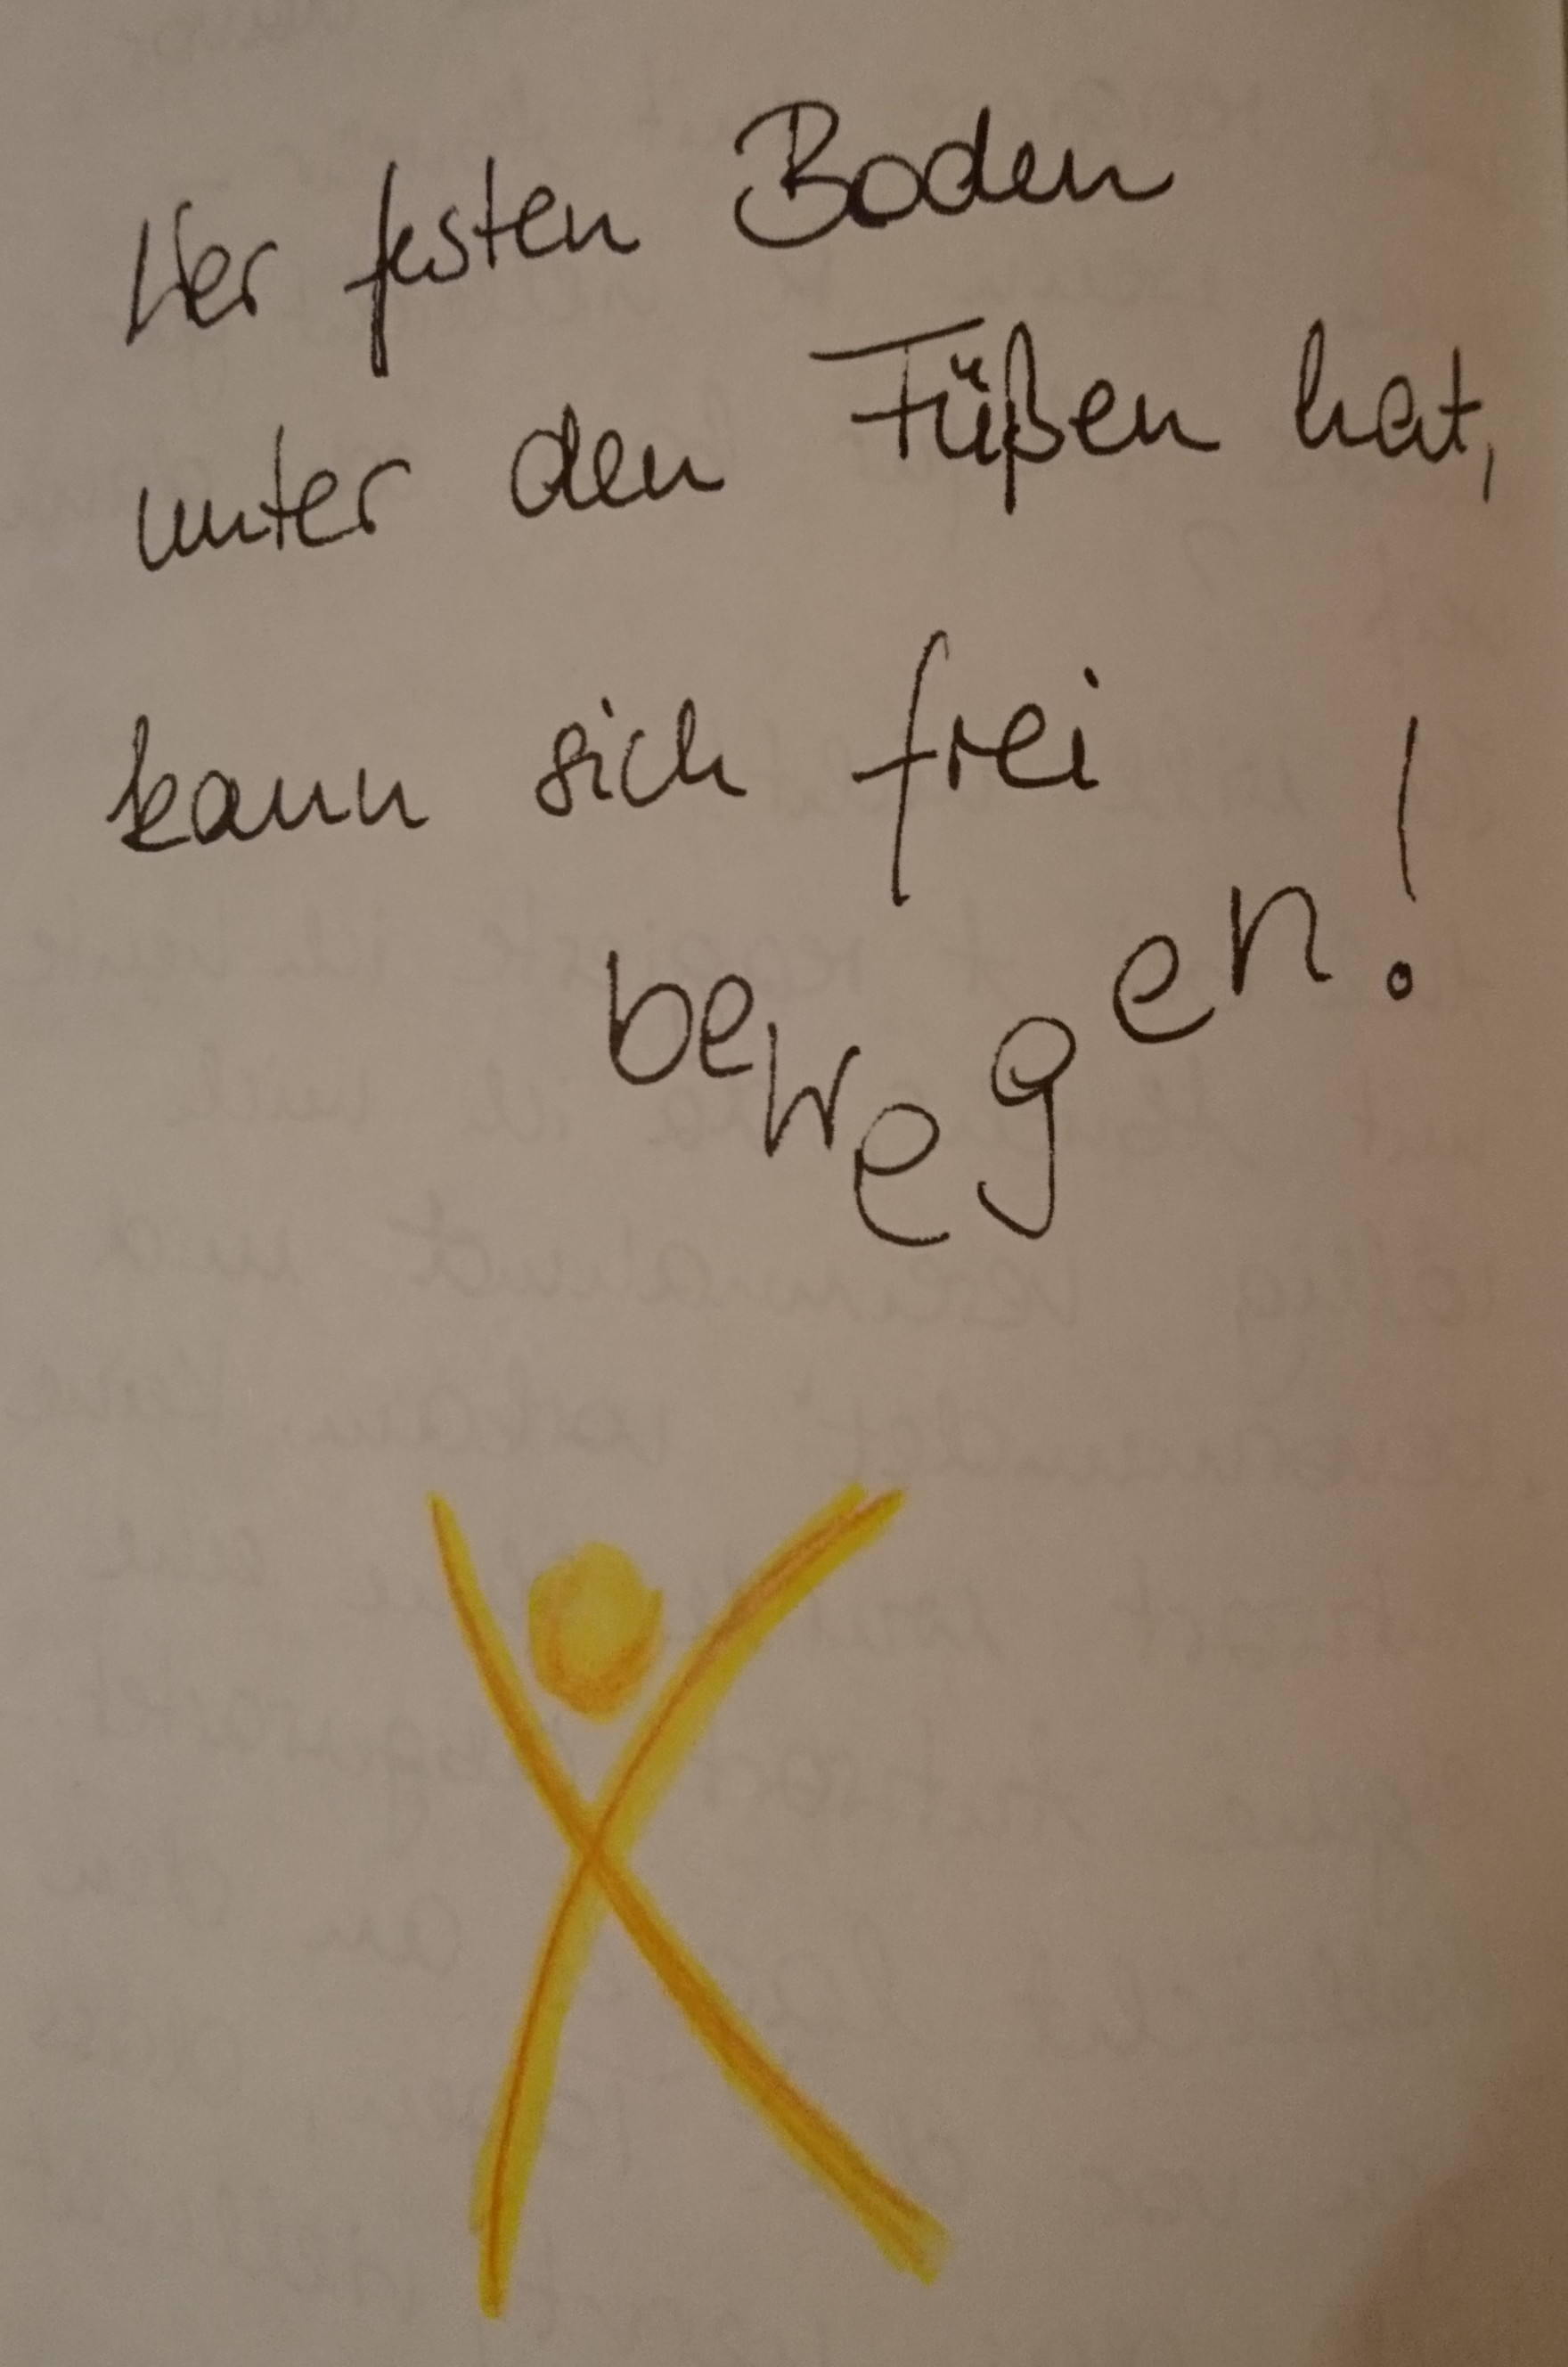 Wer festen Boden
unter den Füßen hat,
kann sich frei
bewegen!